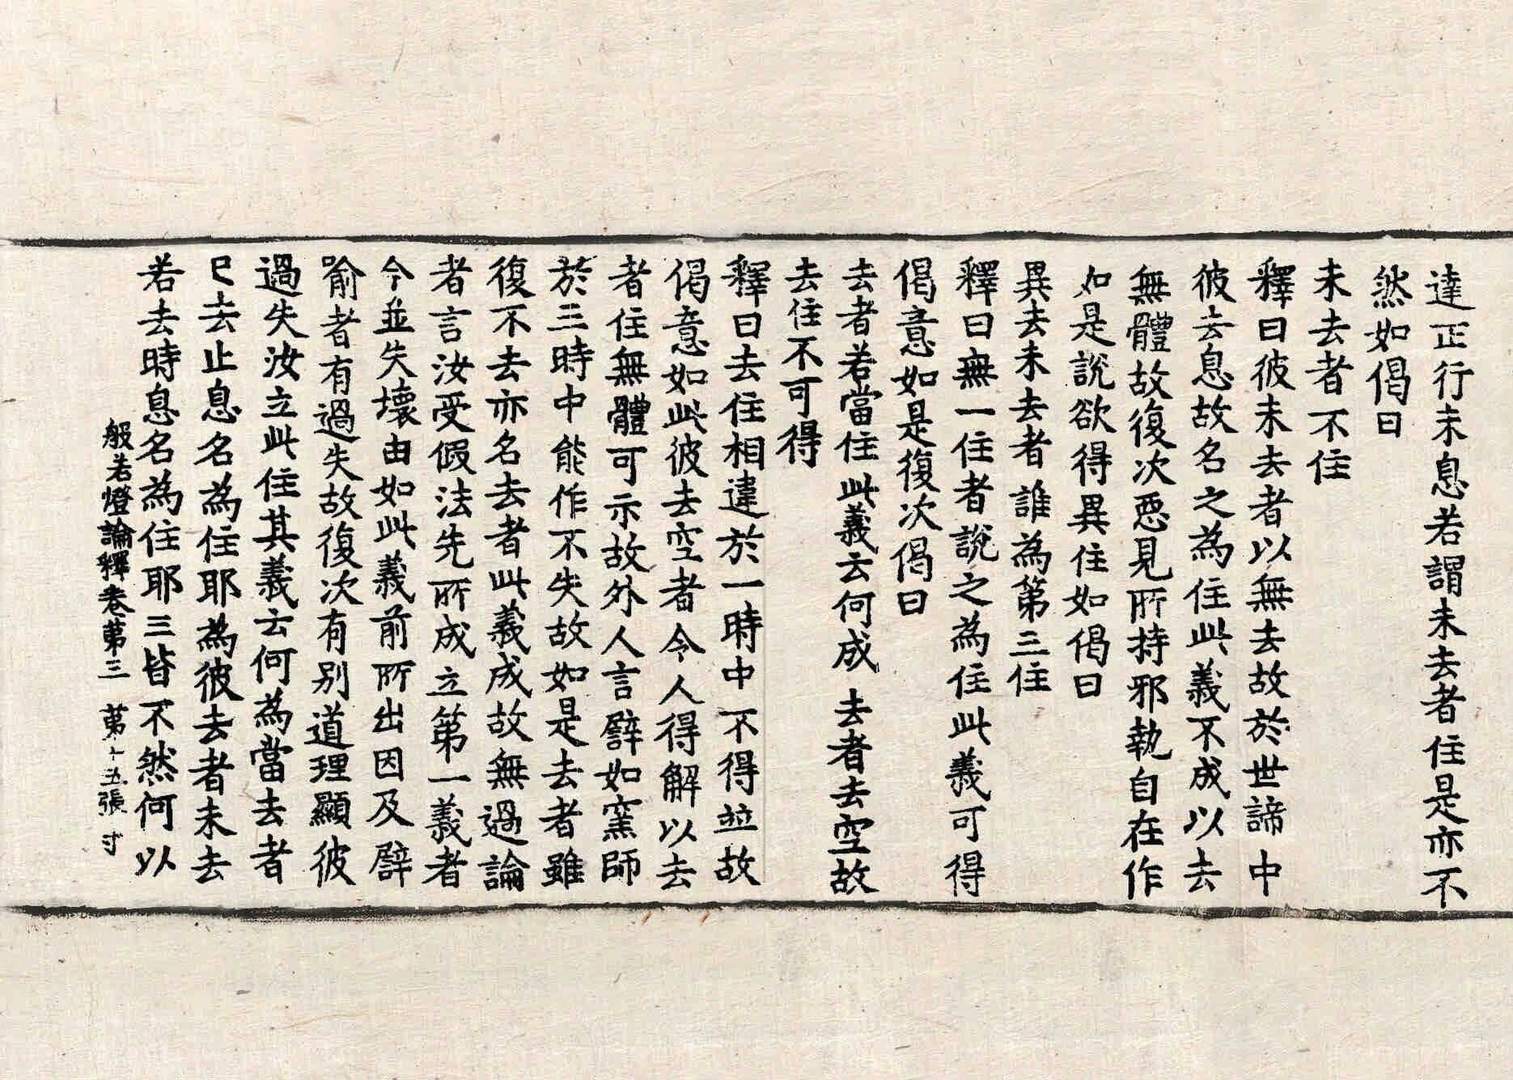 達正行未息若謂未去者住是亦不
然如偈曰
未去者不住
釋曰彼未去者以無去故於世諦中
彼去息故名之為住此義不成以去
無體故復次惡見所持邪執自在作
如是說欲得異住如偈曰
異去未去者誰為第三住
釋曰無一住者說之為住此義可得
偈意如是復次偈曰
去者若當住此義云何成 去者去空故
去住不可得
釋曰去住相違於一時中不得並故
偈意如此彼去空者令人得解以去
者住無體可示故外人言譬如窯師
於三時中能作不失故如是去者雖
復不去亦名去者此義成故無過論
者言汝受假法先所成立第一義者
今並失壞由如此義前所出因及譬
喻者有過失故復次有別道理顯彼
過失汝立此住其義云何為當去者
已去止息名為住耶為彼去者未去
若去時息名為住耶三皆不然何以
般若燈論釋卷第三 第十五張 寸